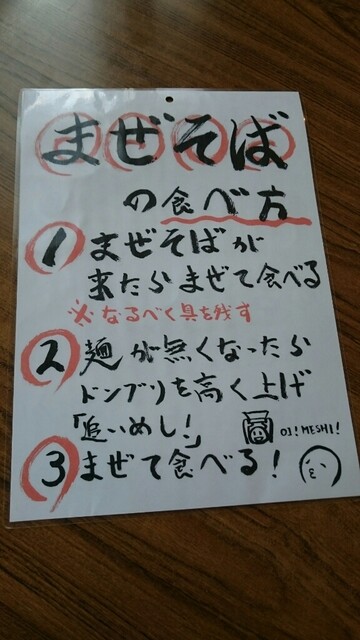 まぜそば
の食べ方
1 まぜそばが
来たらまぜて食べる
※なるべく具を残す
2 麺が無くなったら
ドンブリを高く上げ
「追いめし!」
OI! MESHI!
3 まぜて食べる!